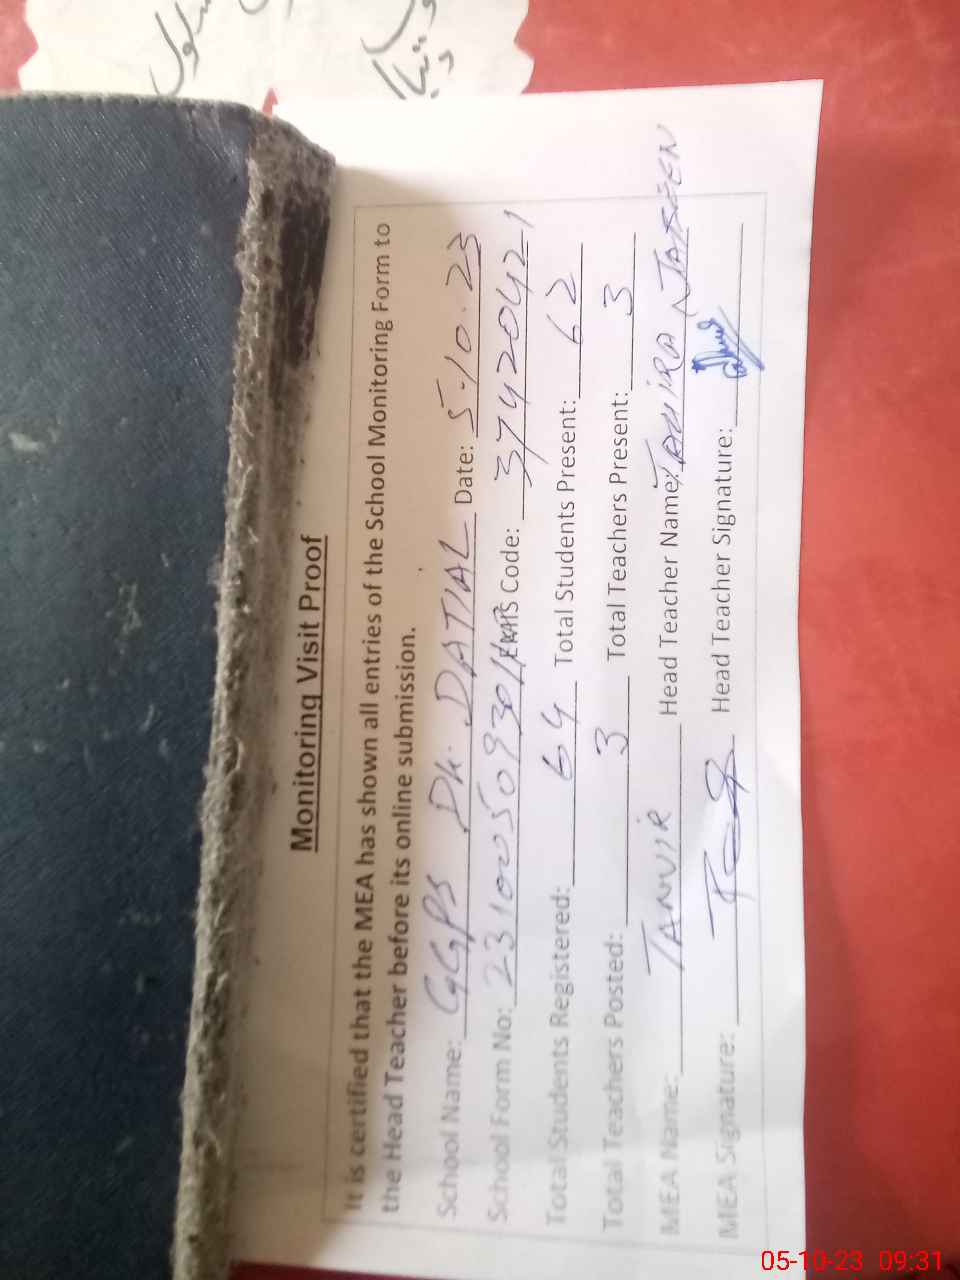 Monitoring Visit Proof
It is certified that the MEA has shown all entries of the School Monitoring Form to
the Head Teacher before its online submission.
School Name: GGPS Dk. DATIAL Date: 5-10-23
School Form No: Code: 37420421
Total Students Registered: 64 Total Students Present: 62
Total Teachers Posted: 3 Total Teachers Present: 3
MEA Name: TANVIR Head Teacher Name: TAHIRA
MEA Signature: Head Teacher Signature:
05-10-23 09:31